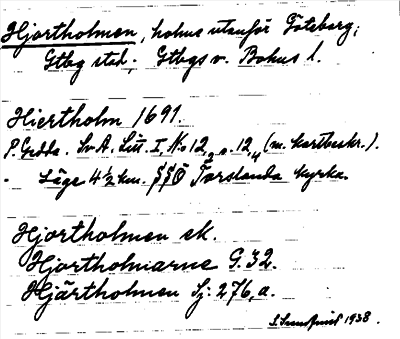 Hjortholmen, holme utanför Göteborg;
Gtbg stad; Gtbgs o. Bohus l.
Hiertholm 1691.
P. Gedda. Sv. A. Litt. I, No 12, 2 o. 12, 4 (m. kartbeskr.).
Läge 4 1/2 km. SSÖ Torslanda kyrka.
Hjortholmen ek.
Hjortholmarne G. 32.
Hjärtholmen Sj: 276, a.
1938.